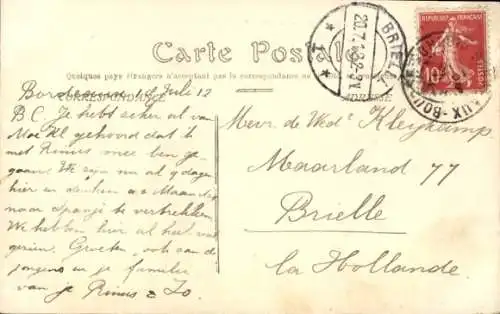 Carte Postale
Quelques pays étrangers n'acceptent pas la correspondance
CORRESPONDANCE
ADRESSE
REPUBLIQUE FRANÇAISE
10
BRIELLE
20.7.12
Bordeaux 18 Juli 12
B C. Je hebt zeker al van
Moe Kl gehoord dat ik
met Rinus mee ben ge-
gaan. We zijn nu al 9 dagen
hier en denken a.s Maandag
naar Spanje te vertrekken.
We hebben hier al heel veel
gezien. Groeten, ook aan de
jongens en je familie
van je Rinus & Jo
Mevr. de Wed Kleijkamp
Maarland 77
Brielle
la Hollande.